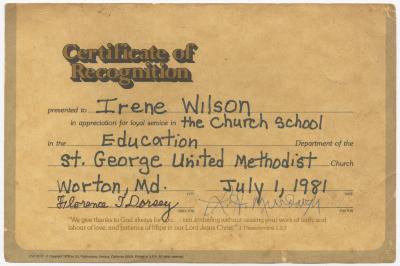 Certificate of
Recognition
presented to Irene Wilson
in appreciation for loyal service in the Church School
in the Education Department of the
St. George United Methodist Church
Worton, Md. July 1, 1981
CITY DATE
Florence T. Dorsey
DIRECTOR PASTOR
"We give thanks to God always for you... remembering without ceasing your work of faith, and
labour of love, and patience of hope in our Lord Jesus Christ." I Thessalonians 1:2,3